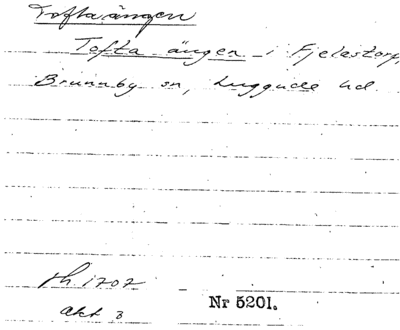 Toftaängen
Tofta ängen i Fjelastorp,
Brunnby sn, Luggude hd.
fh. 1707
akt 3
Nr 5201.